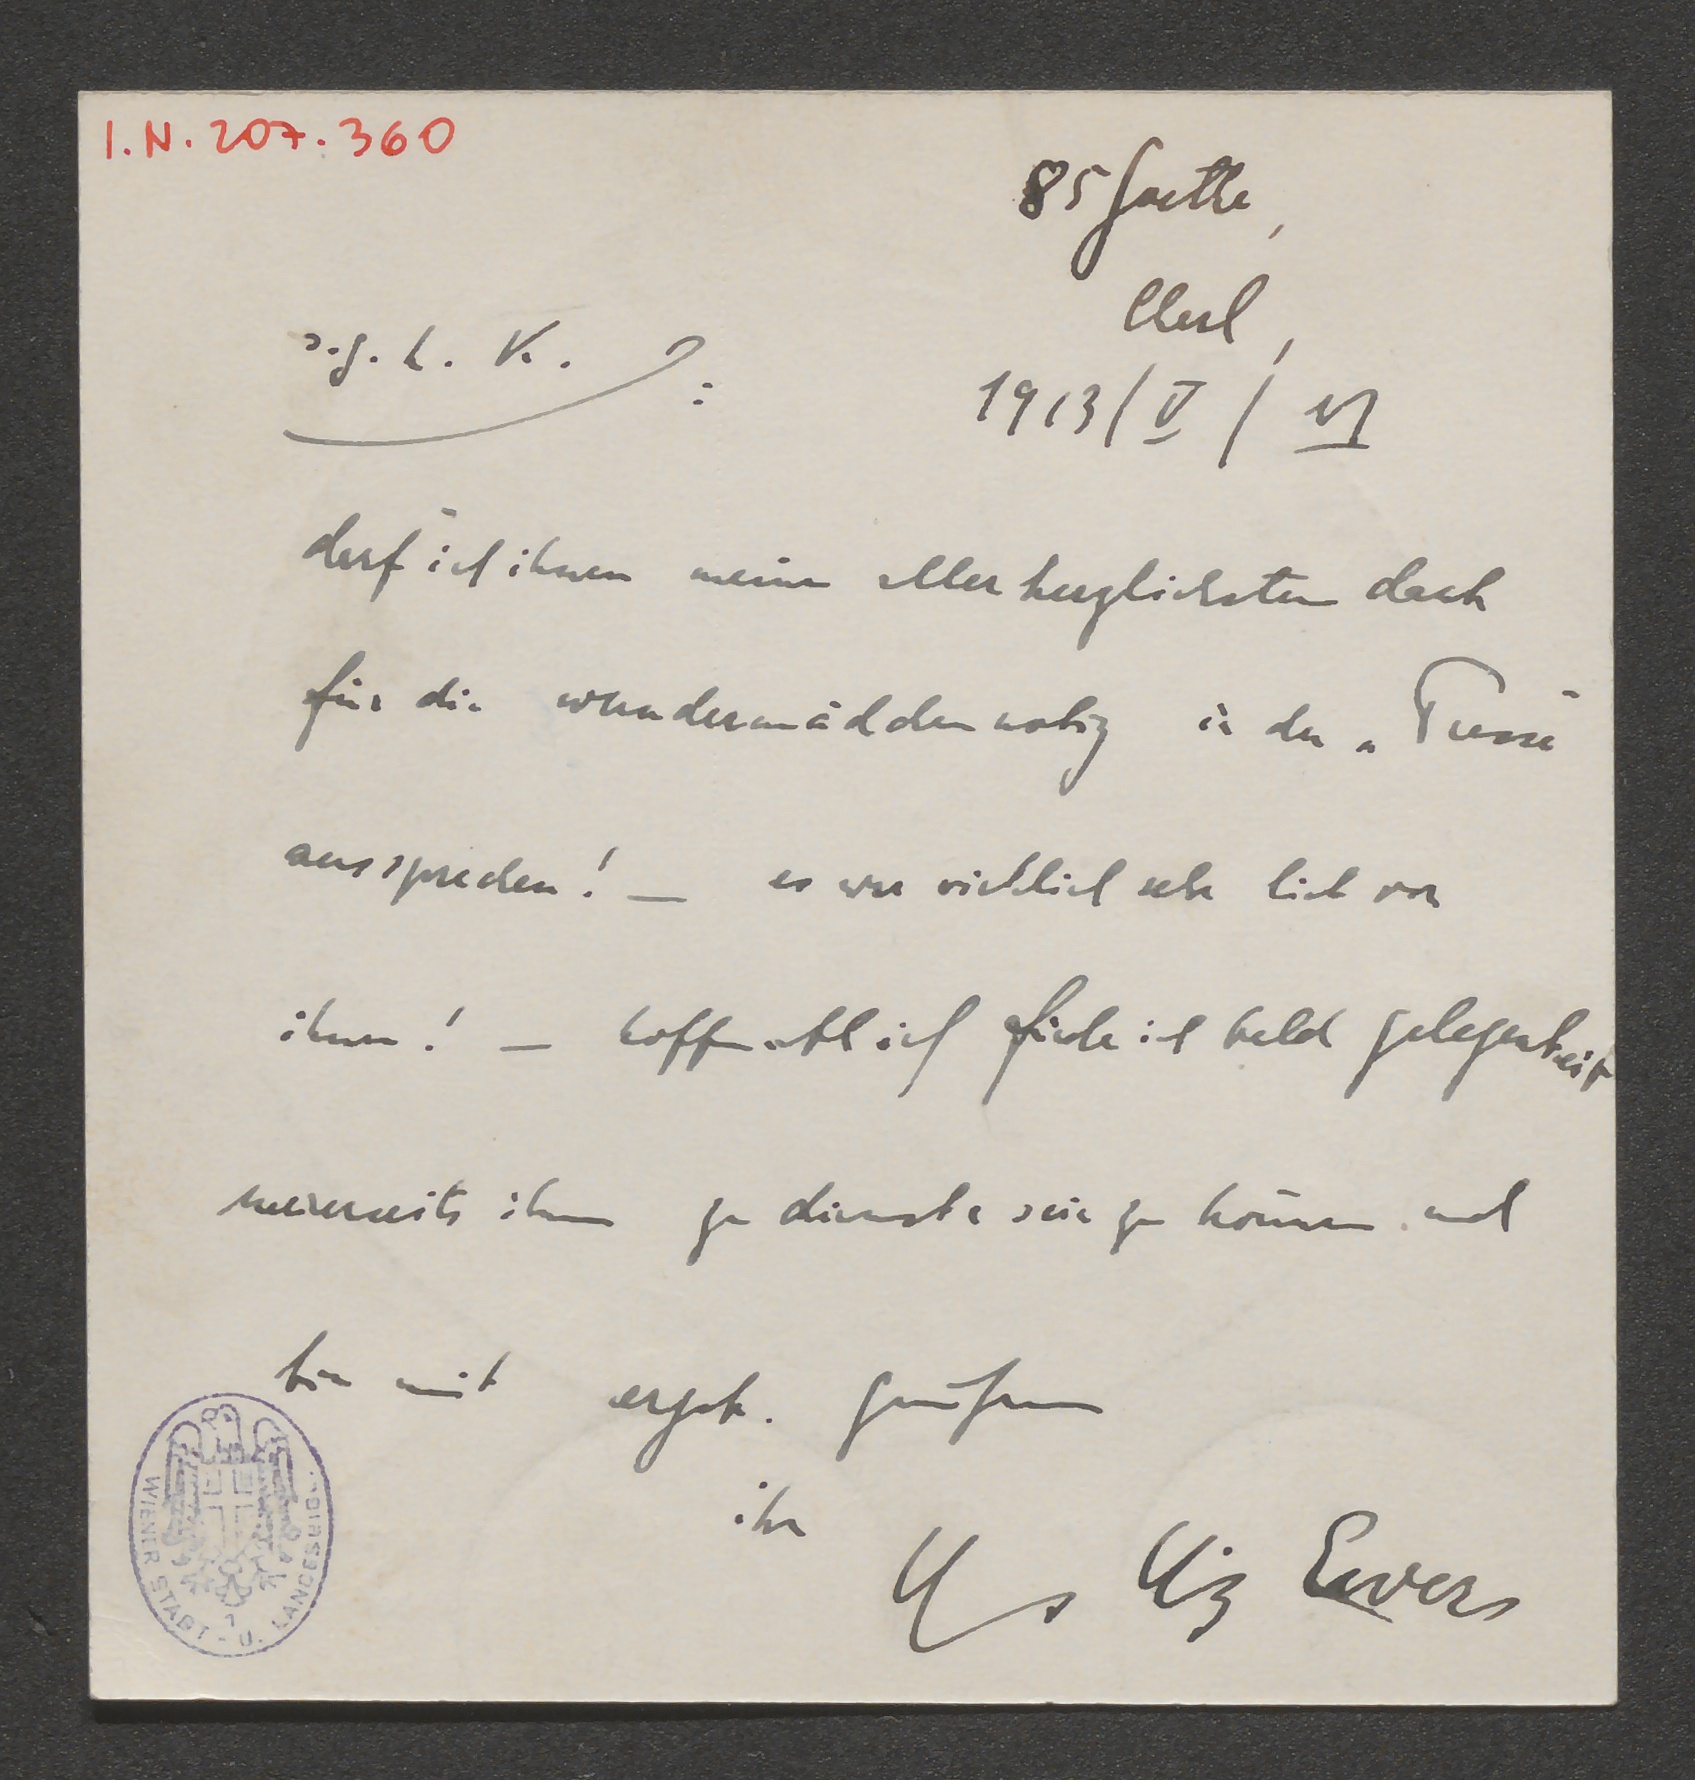 I.N. 207.360
85 Goethe,
Charl,
1913/V/21
s.g.h. K.:
darf ich ihnen meinen allerherzlichsten dank
für die wundermädchennotiz in der „Presse“
aussprechen! — es war wirklich sehr lieb von
ihnen! — hoffentlich finde ich bald gelegenheit
meinerseits ihnen zu dienste sein zu können und
bin mit ergeb. grüßen
ihr
Hns Hnz Ewers
WIENER STADT - U. LANDESBIBL.